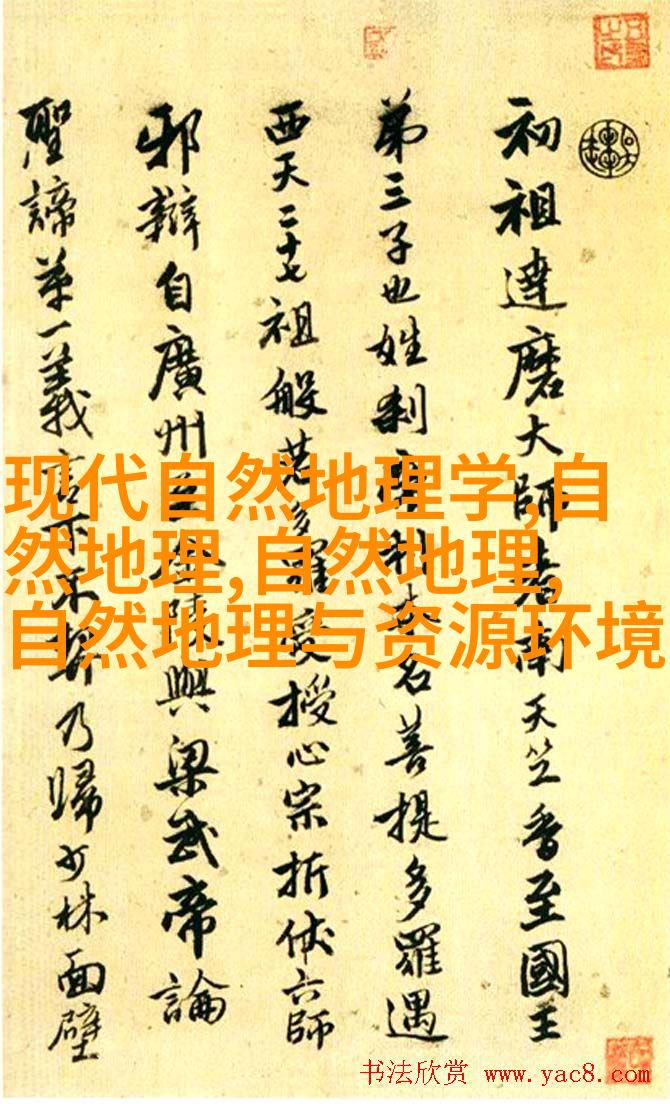 初祖達磨大師者南天竺香至國王
第三子也姓刹帝利本名菩提多羅遇
西天二十七祖般若多羅受授心宗折伏六師
邪辯自廣州至金陵與梁武帝論
聖諦第一義言下不契乃歸少林面壁
现代自然地理学,自
然地理,自然地理,
自然地理与资源环境
书法欣赏 www.yac8.com